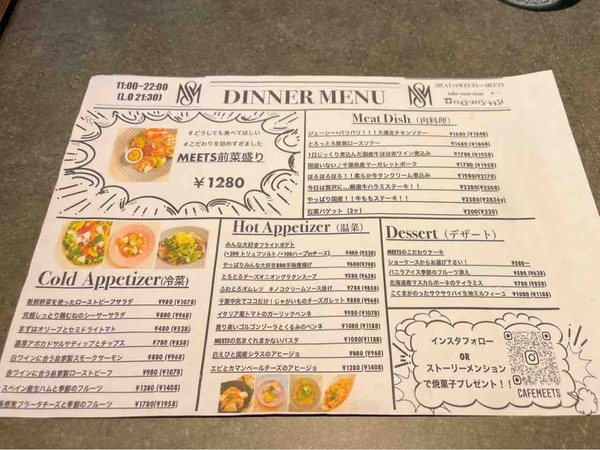 11:00~22:00
(L.O 21:30)
SM
DINNER MENU
SM
MEAT×SWEETS=MEETS
take your time
☎043-205-4451
#どうしても食べてほしい
#こだわりを詰めすぎました
MEETS前菜盛り
¥1280
Meat Dish (肉料理)
ジューシーパリパリ!!!大満足チキンソテー ¥1680(¥1848)
とろっとろ豚肩ロースソテー ¥1680(¥1848)
1日じっくり煮込んだ国産牛ほほ赤ワイン煮込み ¥1780(¥1958)
間違いない♪千葉県産マーガレットポーク ¥1780(¥1958)
ほろほろほろ!!柔らか牛タンクリーム煮込み ¥1980(¥2178)
今日は贅沢に...厳選牛ハラミステーキ!! ¥2280(¥2508)
やっぱり国産!!牛ももステーキ!! ¥2580(¥2838)
石窯バゲット(2ヶ) ¥200(¥220)
Cold Appetizer(冷菜)
新鮮野菜を使ったローストビーフサラダ ¥980(¥1078)
究極しっとり鶏むねのシーザーサラダ ¥880(¥968)
まずはオリーブとセミドライトマト ¥480(¥528)
濃厚アボカドサルサディップとチップス ¥780(¥858)
白ワインに合う自家製スモークサーモン ¥880(¥968)
赤ワインに合う自家製ローストビーフ ¥980(¥1078)
スペイン産生ハムと季節のフルーツ ¥1280(¥1408)
感覚ブラータチーズと季節のフルーツ ¥1780(¥1958)
Hot Appetizer (温菜)
みんな大好きフライドポテト
(+300 トリュフソルト/+100ハーブorチーズ) ¥480(¥528)
やっぱりみんな大好きBBQ手羽唐揚げ ¥680(¥748)
とろーりチーズオニオングラタンスープ ¥580(¥638)
ふわとろオムレツ キノコクリームソース掛け ¥780(¥858)
千葉中央でココだけ!じゃがいものチーズガレット ¥880(¥968)
イタリア産トマトのガーリックペンネ ¥980(¥1078)
薫り高いゴルゴンゾーラとくるみのペンネ ¥1080(¥1188)
MEETSの気まぐれまかないパスタ ¥1080(¥1188)
白えびと国産シラスのアヒージョ ¥880(¥968)
エビとカマンベールチーズのアヒージョ ¥1280(¥1408)
Dessert (デザート)
MEETSのこだわりケーキ
ショーケースからお選び下さい! ¥580~
バニラアイス季節のフルーツ添え ¥580(¥638)
北海道産マスカルポーネのティラミス ¥780(¥858)
こぐまがのったサクサクパイ生地ミルフィーユ ¥1080(¥1188)
インスタフォロー
OR
ストーリーメンション
で焼菓子プレゼント!!
CAFEMEETS